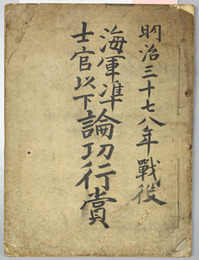 明治三十七八年戦役
海軍準
士官以下論功行賞